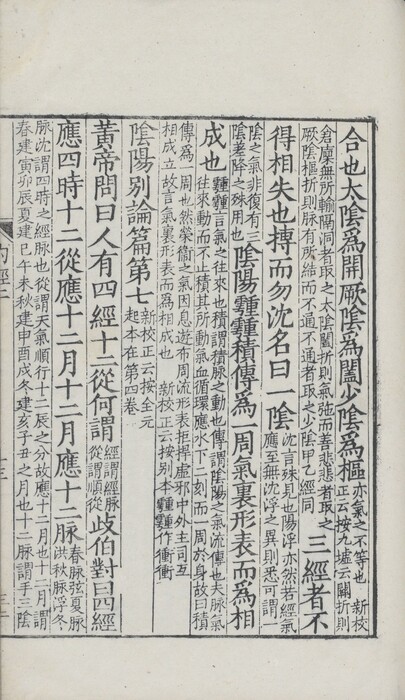 合也太陰為開厥陰為闔少陰為樞亦氣之不等也　新校正云按九墟云關折則
倉廩無所輸隔洞者取之太陰闔折則氣弛而善悲悲者取之厥陰樞折則脉有所結而不通不通者取之少陰甲乙經同三經者不
得相失也搏而勿沈名曰一陰沈言殊見也陽浮亦然若經氣應至無沈浮之異則悉可謂一
陰之氣非復有三陰差降之殊用也陰陽𩅞𩅞積傳為一周氣裏形表而為相
成也𩅞𩅞言氣之往來也積謂積脉之動也傳謂陰陽之氣流傳也夫脉氣往來動而不止積其所動氣血循環應水下二刻而一周於身故曰積
傳為一周也然榮衞之氣因息遊布周流形表拒捍虛邪中外主司互相成立故言氣裏形表而為相成也　新校正云按別本𩅞𩅞作衝衝
陰陽別論篇第七新校正云按全元起本在第四卷
黃帝問曰人有四經十二從何謂經謂經脉從謂順從歧伯對曰四經
應四時十二從應十二月十二月應十二脉春脉弦夏脉洪秋脉浮冬
脉沈謂四時之經脉也從謂天氣順行十二辰之分故應十二月也十二月謂春建寅卯辰夏建巳午未秋建申酉戌冬建亥子丑之月也十二脉謂手三陰